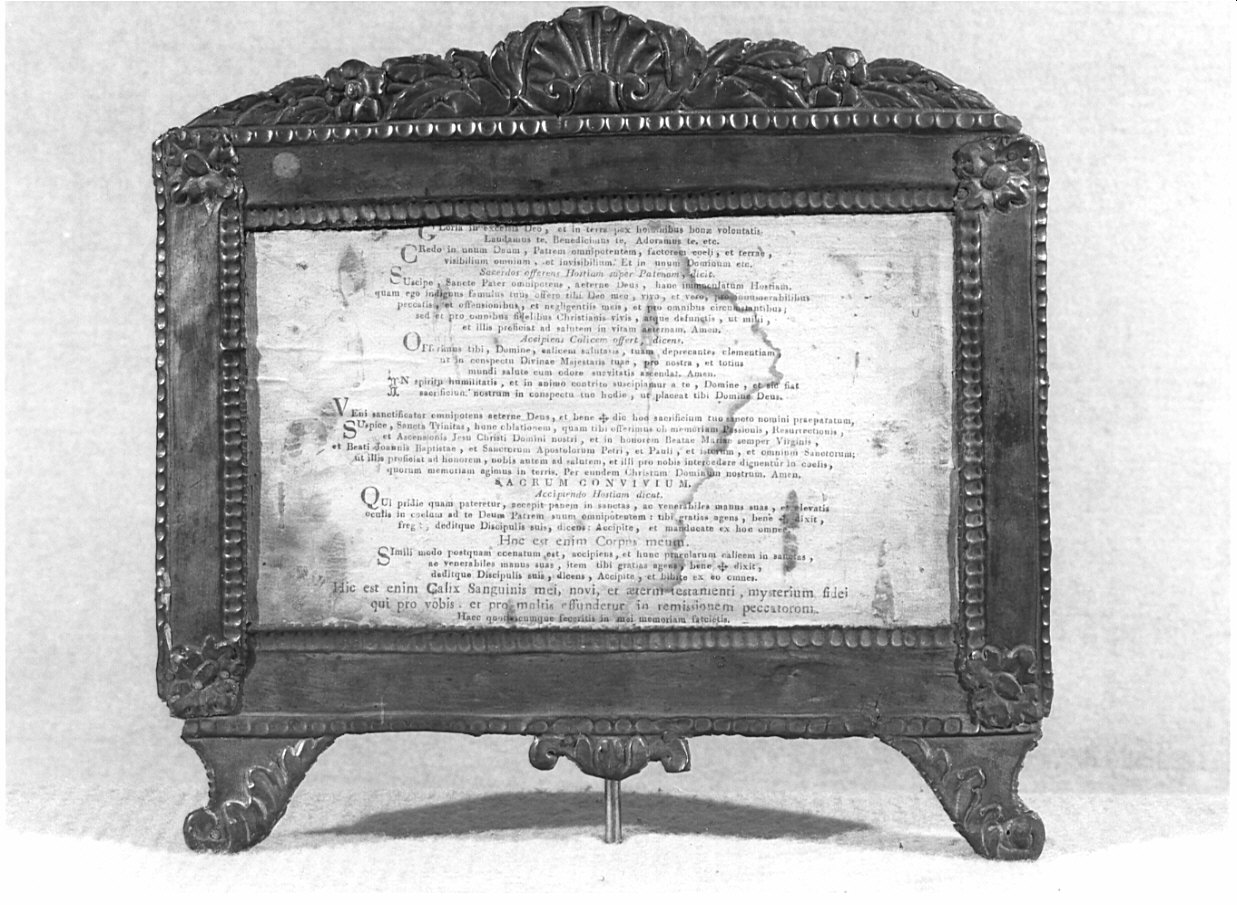 Gloria in excelsis Deo, et in terra pax hominibus bonæ voluntatis.
Laudamus te, Benedicimus te, Adoramus te, etc.
CRedo in unum Deum, Patrem omnipotentem, factorem coeli, et terræ,
visibilium omnium, et invisibilium. Et in unum Dominum etc.
Sacerdos offerens Hostiam super Patenam, dicit.
SUscipe, Sancte Pater omnipotens, aeterne Deus, hanc immaculatam Hostiam,
quam ego indignus famulus tuus offero tibi Deo meo, vivo, et vero, pro innumerabilibus
peccatis, et offensionibus, et negligentiis meis, et pro omnibus circumstantibus;
sed et pro omnibus fidelibus Christianis vivis, atque defunctis, ut mihi,
et illis proficiat ad salutem in vitam aeternam. Amen.
Accipiens Calicem offert, dicens.
OFferimus tibi, Domine, calicem salutaris, tuam deprecantes clementiam,
ut in conspectu Divinae Majestatis tuae, pro nostra, et totius
mundi salute cum odore suavitatis ascendat. Amen.
IN spiritu humilitatis, et in animo contrito suscipiamur a te, Domine, et sic fiat
sacrificium nostrum in conspectu tuo hodie, ut placeat tibi Domine Deus.
VEni sanctificator omnipotens aeterne Deus, et bene ✠ dic hoc sacrificium tuo sancto nomini praeparatum,
SUspice, Sancta Trinitas, hanc oblationem, quam tibi offerimus ob memoriam Passionis, Resurrectionis,
et Ascensionis Jesu Christi Domini nostri, et in honorem Beatae Mariae semper Virginis,
et Beati Joannis Baptistae, et Sanctorum Apostolorum Petri, et Pauli, et istorum, et omnium Sanctorum;
ut illis proficiat ad honorem, nobis autem ad salutem, et illi pro nobis intercedere dignentur in coelis,
quorum memoriam agimus in terris. Per eundem Christum Dominum nostrum. Amen.
SACRUM CONVIVIUM.
Accipiendo Hostiam dicat.
QUi pridie quam pateretur, accepit panem in sanctas, ac venerabiles manus suas, et elevatis
oculis in coelum ad te Deum Patrem suum omnipotentem: tibi gratias agens, bene ✠ dixit,
fregit, deditque Discipulis suis, dicens: Accipite, et manducate ex hoc omnes.
Hoc est enim Corpus meum.
SImili modo postquam coenatum est, accipiens, et hunc praeclarum calicem in sanctas,
ac venerabiles manus suas, item tibi gratias agens, bene ✠ dixit,
deditque Discipulis suis, dicens, Accipite, et bibite ex eo omnes.
Hic est enim Calix Sanguinis mei, novi, et æterni testamenti, mysterium fidei
qui pro vobis. et pro multis effundetur in remissionem peccatorum.
Haec quotiescumque feceritis in mei memoriam facietis.